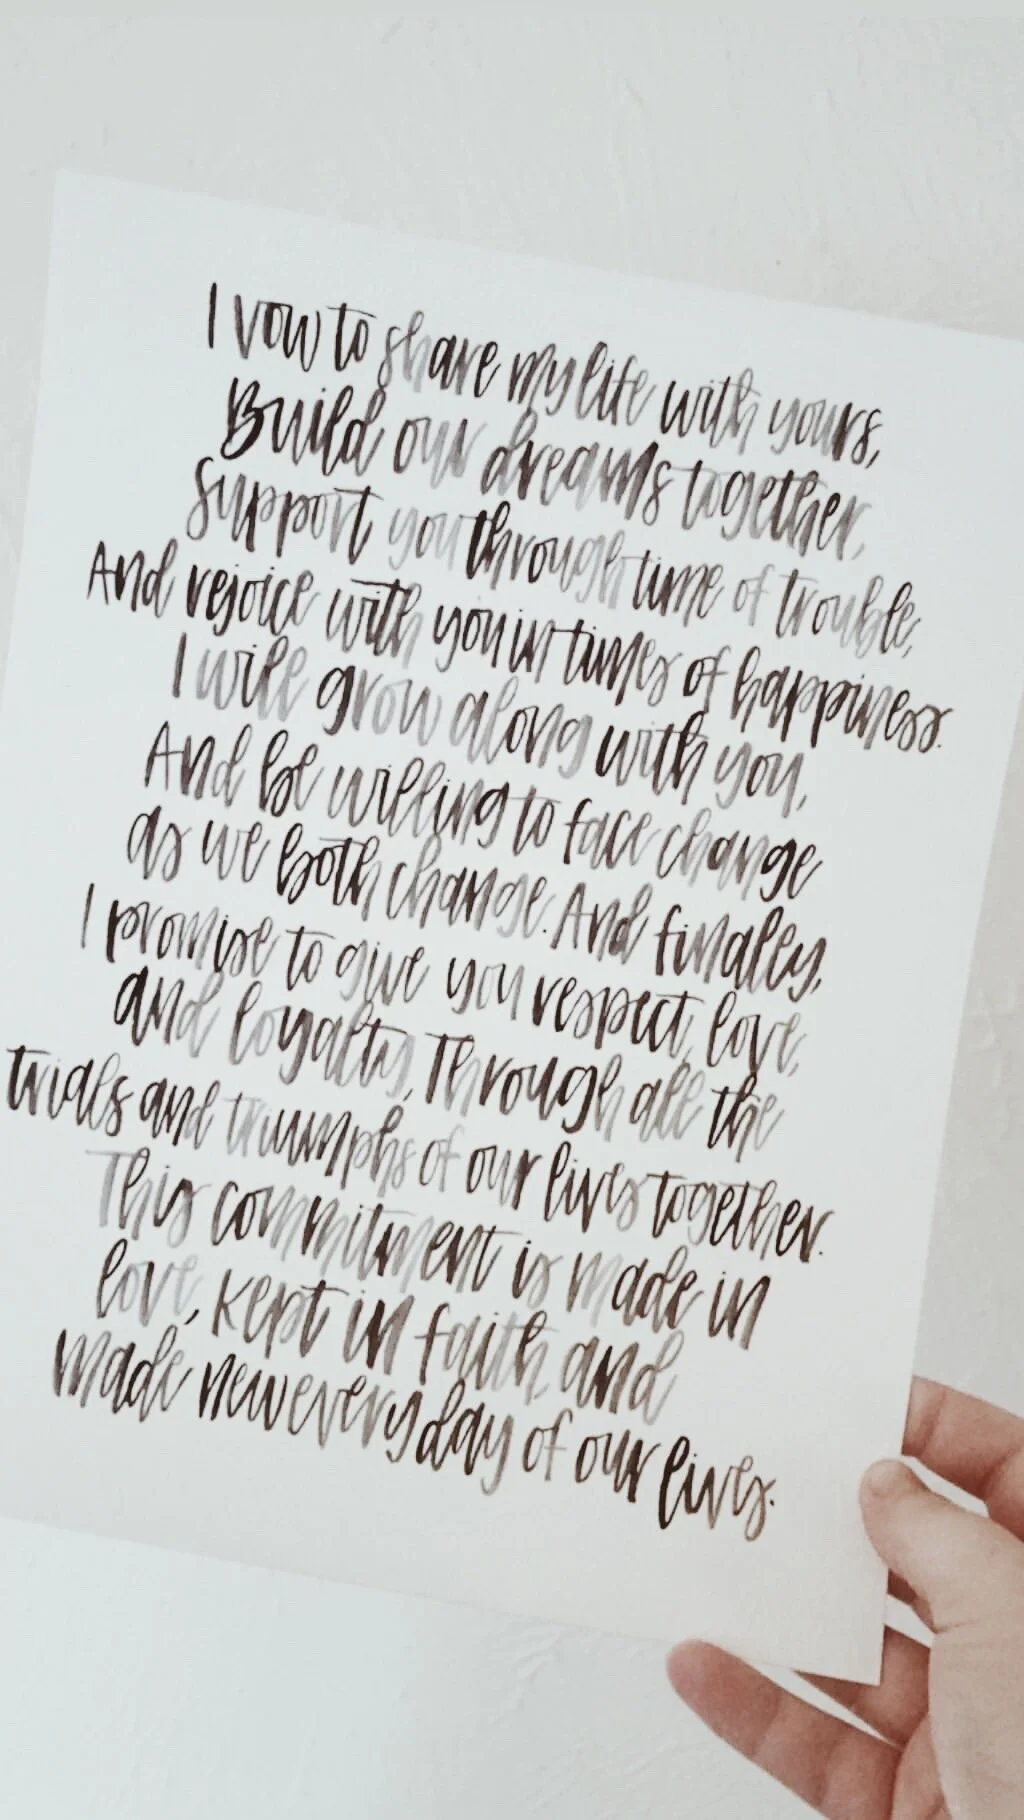 I vow to share my life with yours,
Build our dreams together,
Support you through time of trouble,
And rejoice with you in times of happiness.
I will grow along with you,
And be willing to face change
as we both change. And finally,
I promise to give you respect, love,
and loyalty, Through all the
trials and triumphs of our lives together.
This commitment is made in
love, kept in faith, and
made new every day of our lives.